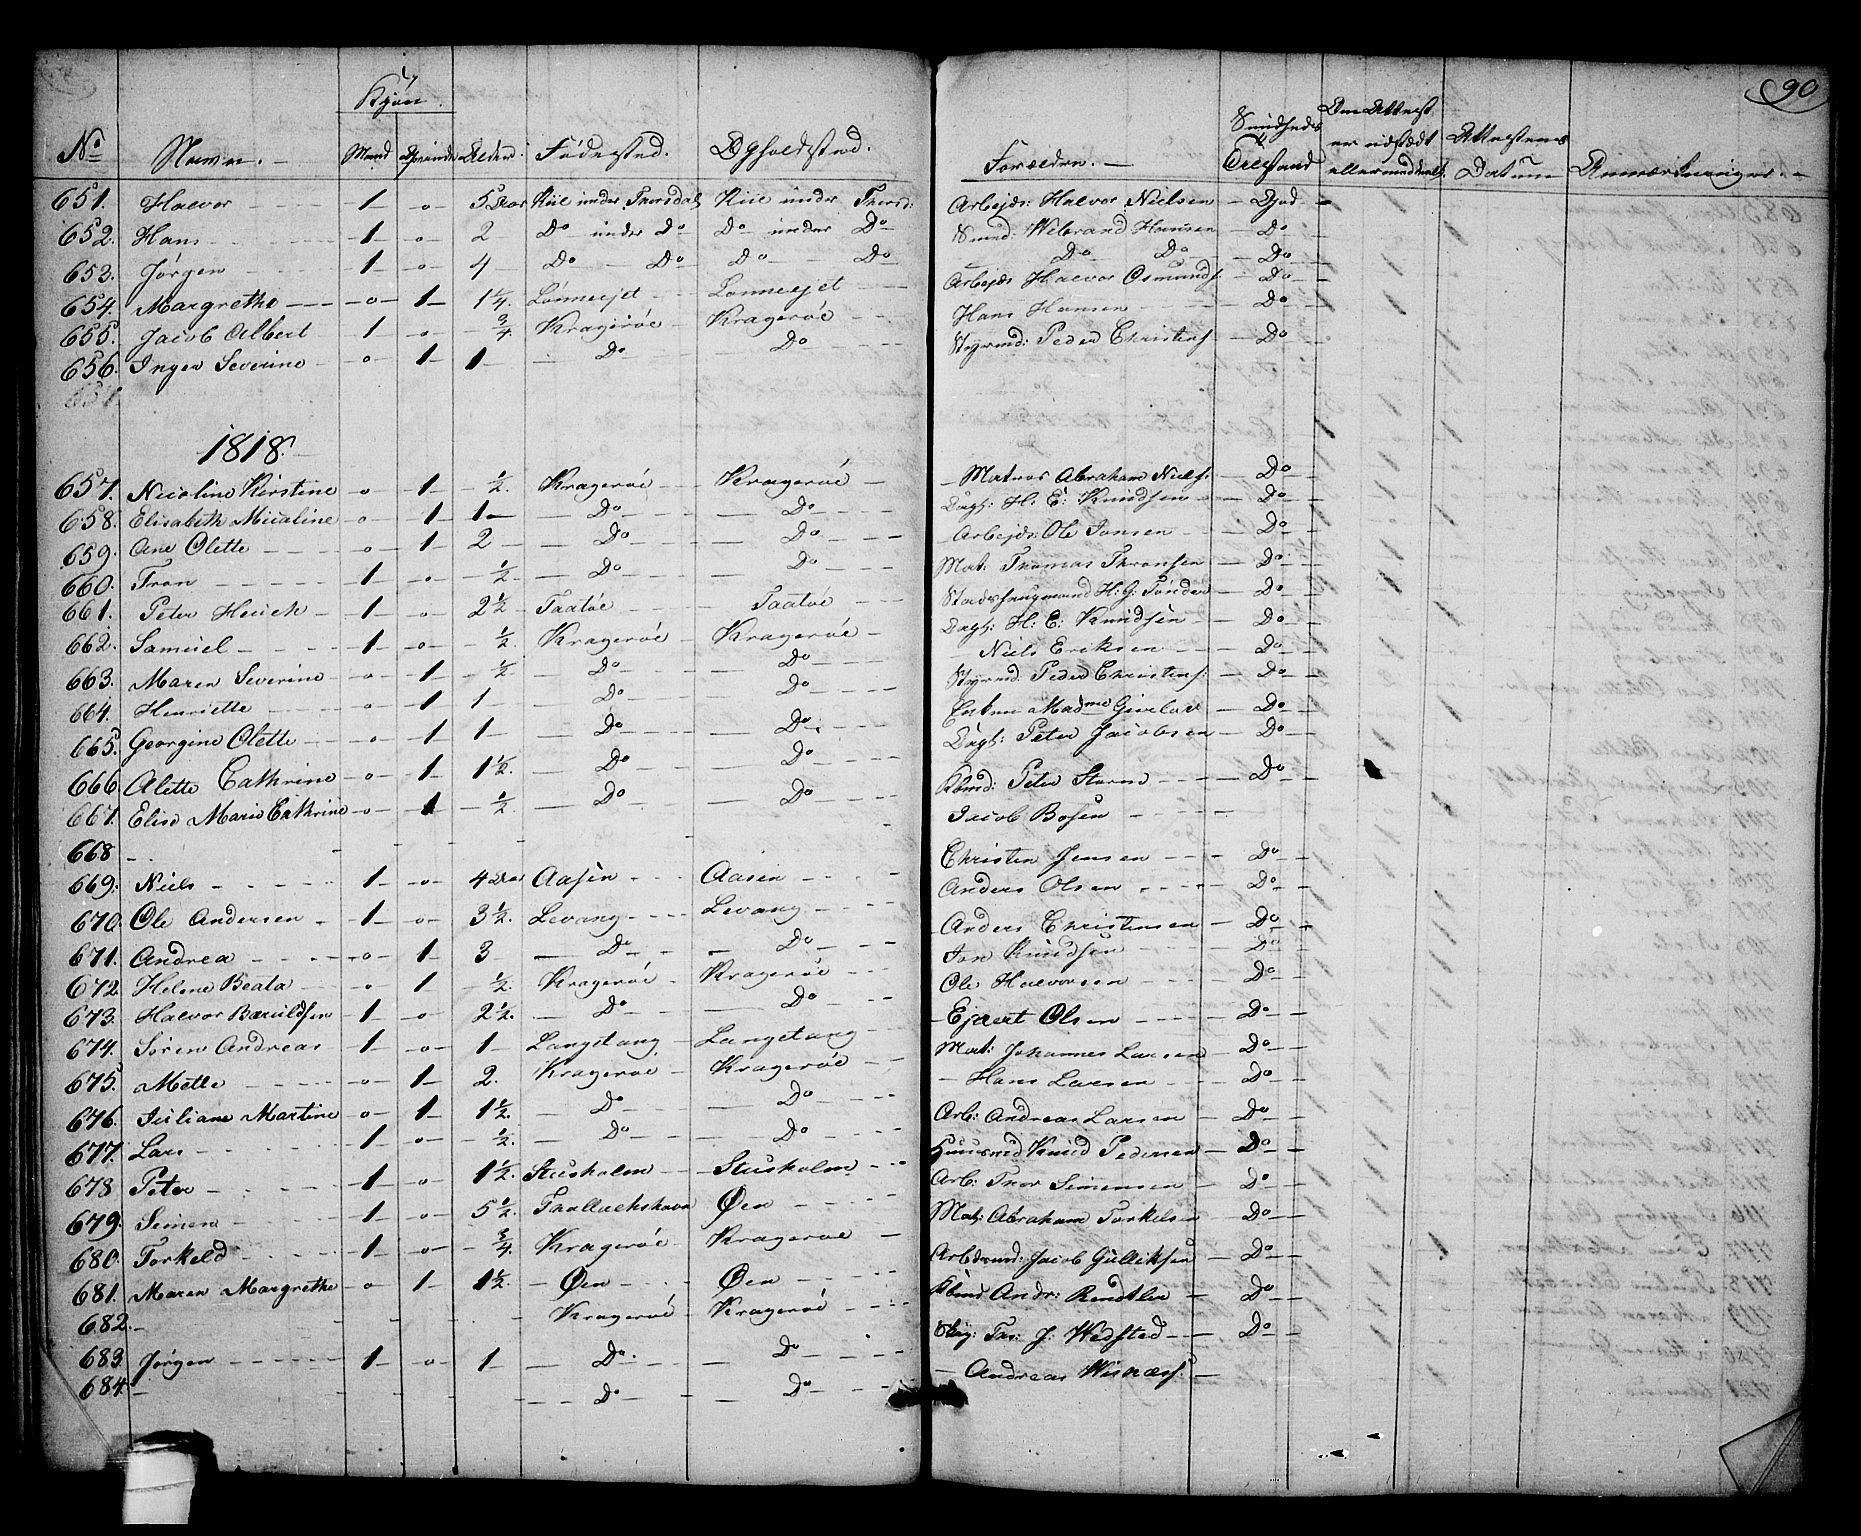 90
Kjön.
No Navne. Mand Qvinde Alder. Födested. Opholdsted. Forældre. Sundheds Tilstand Om Attest er udstædt eller meddeelt. Attestens Datum Anmærkninger.
651. Halvor 1 o 5 Aar Kiil under Thorsdal Kiil under Thorsd: Arbejds: Halvor Nielsen God
652. Hans 1 o 2 Do under Do Do under Do Smed: Wibrand Hansen Do
653. Jörgen 1 o 4 Do Do Do Do Do Do Do
654. Margrethe o 1 1 1/4. Lönneejet Lönneejet Arbejds Halvor Osmunds. Do
655. Jacob Albert 1 o 3/4 Krageröe Krageröe Hans Hansen Do
656. Inger Severine o 1 1 Do Do Styrmd: Peder Christens. Do
1818.
657. Nicoline Kirstine o 1 1/2. Krageröe Krageröe Matros Abraham Niels. Do
658. Elisabeth Micaline o 1 1 Do Do Dagl: H: E: Knudsen Do
659. Ane Olette o 1 2 Do Do Arbejds: Ole Jonsen Do
660. Tron 1 o 1/2 Do Do Mat: Thomas Thronsen Do
661. Peter Heuch 1 o 2 1/2 Taatöe Taatöe Stadshaupmand H: G: Tönder Do
662. Samuel 1 o 1/2. Krageröe Krageröe Dagl: H: E: Knudsen Do
663. Maren Severine o 1 1/2 Do Do Niels Eriksen Do
664. Henriette o 1 1 Do Do Styrmd. Peder Christens: Do
665. Georgine Olette o 1 1 Do Do Enken Madme Do
666. Alette Cathrine o 1 1 1/2. Do Do Dagl: Peter Jacobsen Do
667. Elise Marie Cathrine o 1 1/2 Do Do Kbmd: Peter Storm Do
668 Jacob Bosen
669. Niels 1 o 4 Aar Aasen Aasen Christen Jensen Do
670. Ole Andersen 1 o 3 1/2. Levang Levang Anders Olsen Do
671. Andrea o 1 3 Do Do Anders Christensen Do
672 Helene Beata o 1 1/2. Krageröe Krageröe Jon Knudsen Do
673. Halvor Baruldsen 1 o 2 1/2. Do Do Ole Halvorsen Do
674. Sören Andreas 1 o 1 Langetang Langetang Ejlert Olsen Do
675. Mette o 1 2. Krageröe Krageröe Mat: Johannes Larsen Do
676. Juliane Martine o 1 1 1/2. Do Do Hans Larsen Do
677. Lars 1 o 1/2. Do Do Arb: Andreas Larsen Do
678 Peter 1 o 1 1/2. Skusholm Skusholm Huusmd Knud Pedersen Do
679. Simen 1 o 5 1/2. Öen Arb: Thor Simensen Do
680. Torkeld 1 o 3/4. Krageröe Krageröe Mat: Abraham Torkelsen Do
681. Maren Margrethe o 1 1 1/2. Öen Öen Arbdsmd: Jacob Gulliksen Do
682. Krageröe Krageröe Kbmd Andr: Rendtler Do
683 Jörgen 1 o 1 Do. Do J: Wedsted Do
684. Do Do Andreas